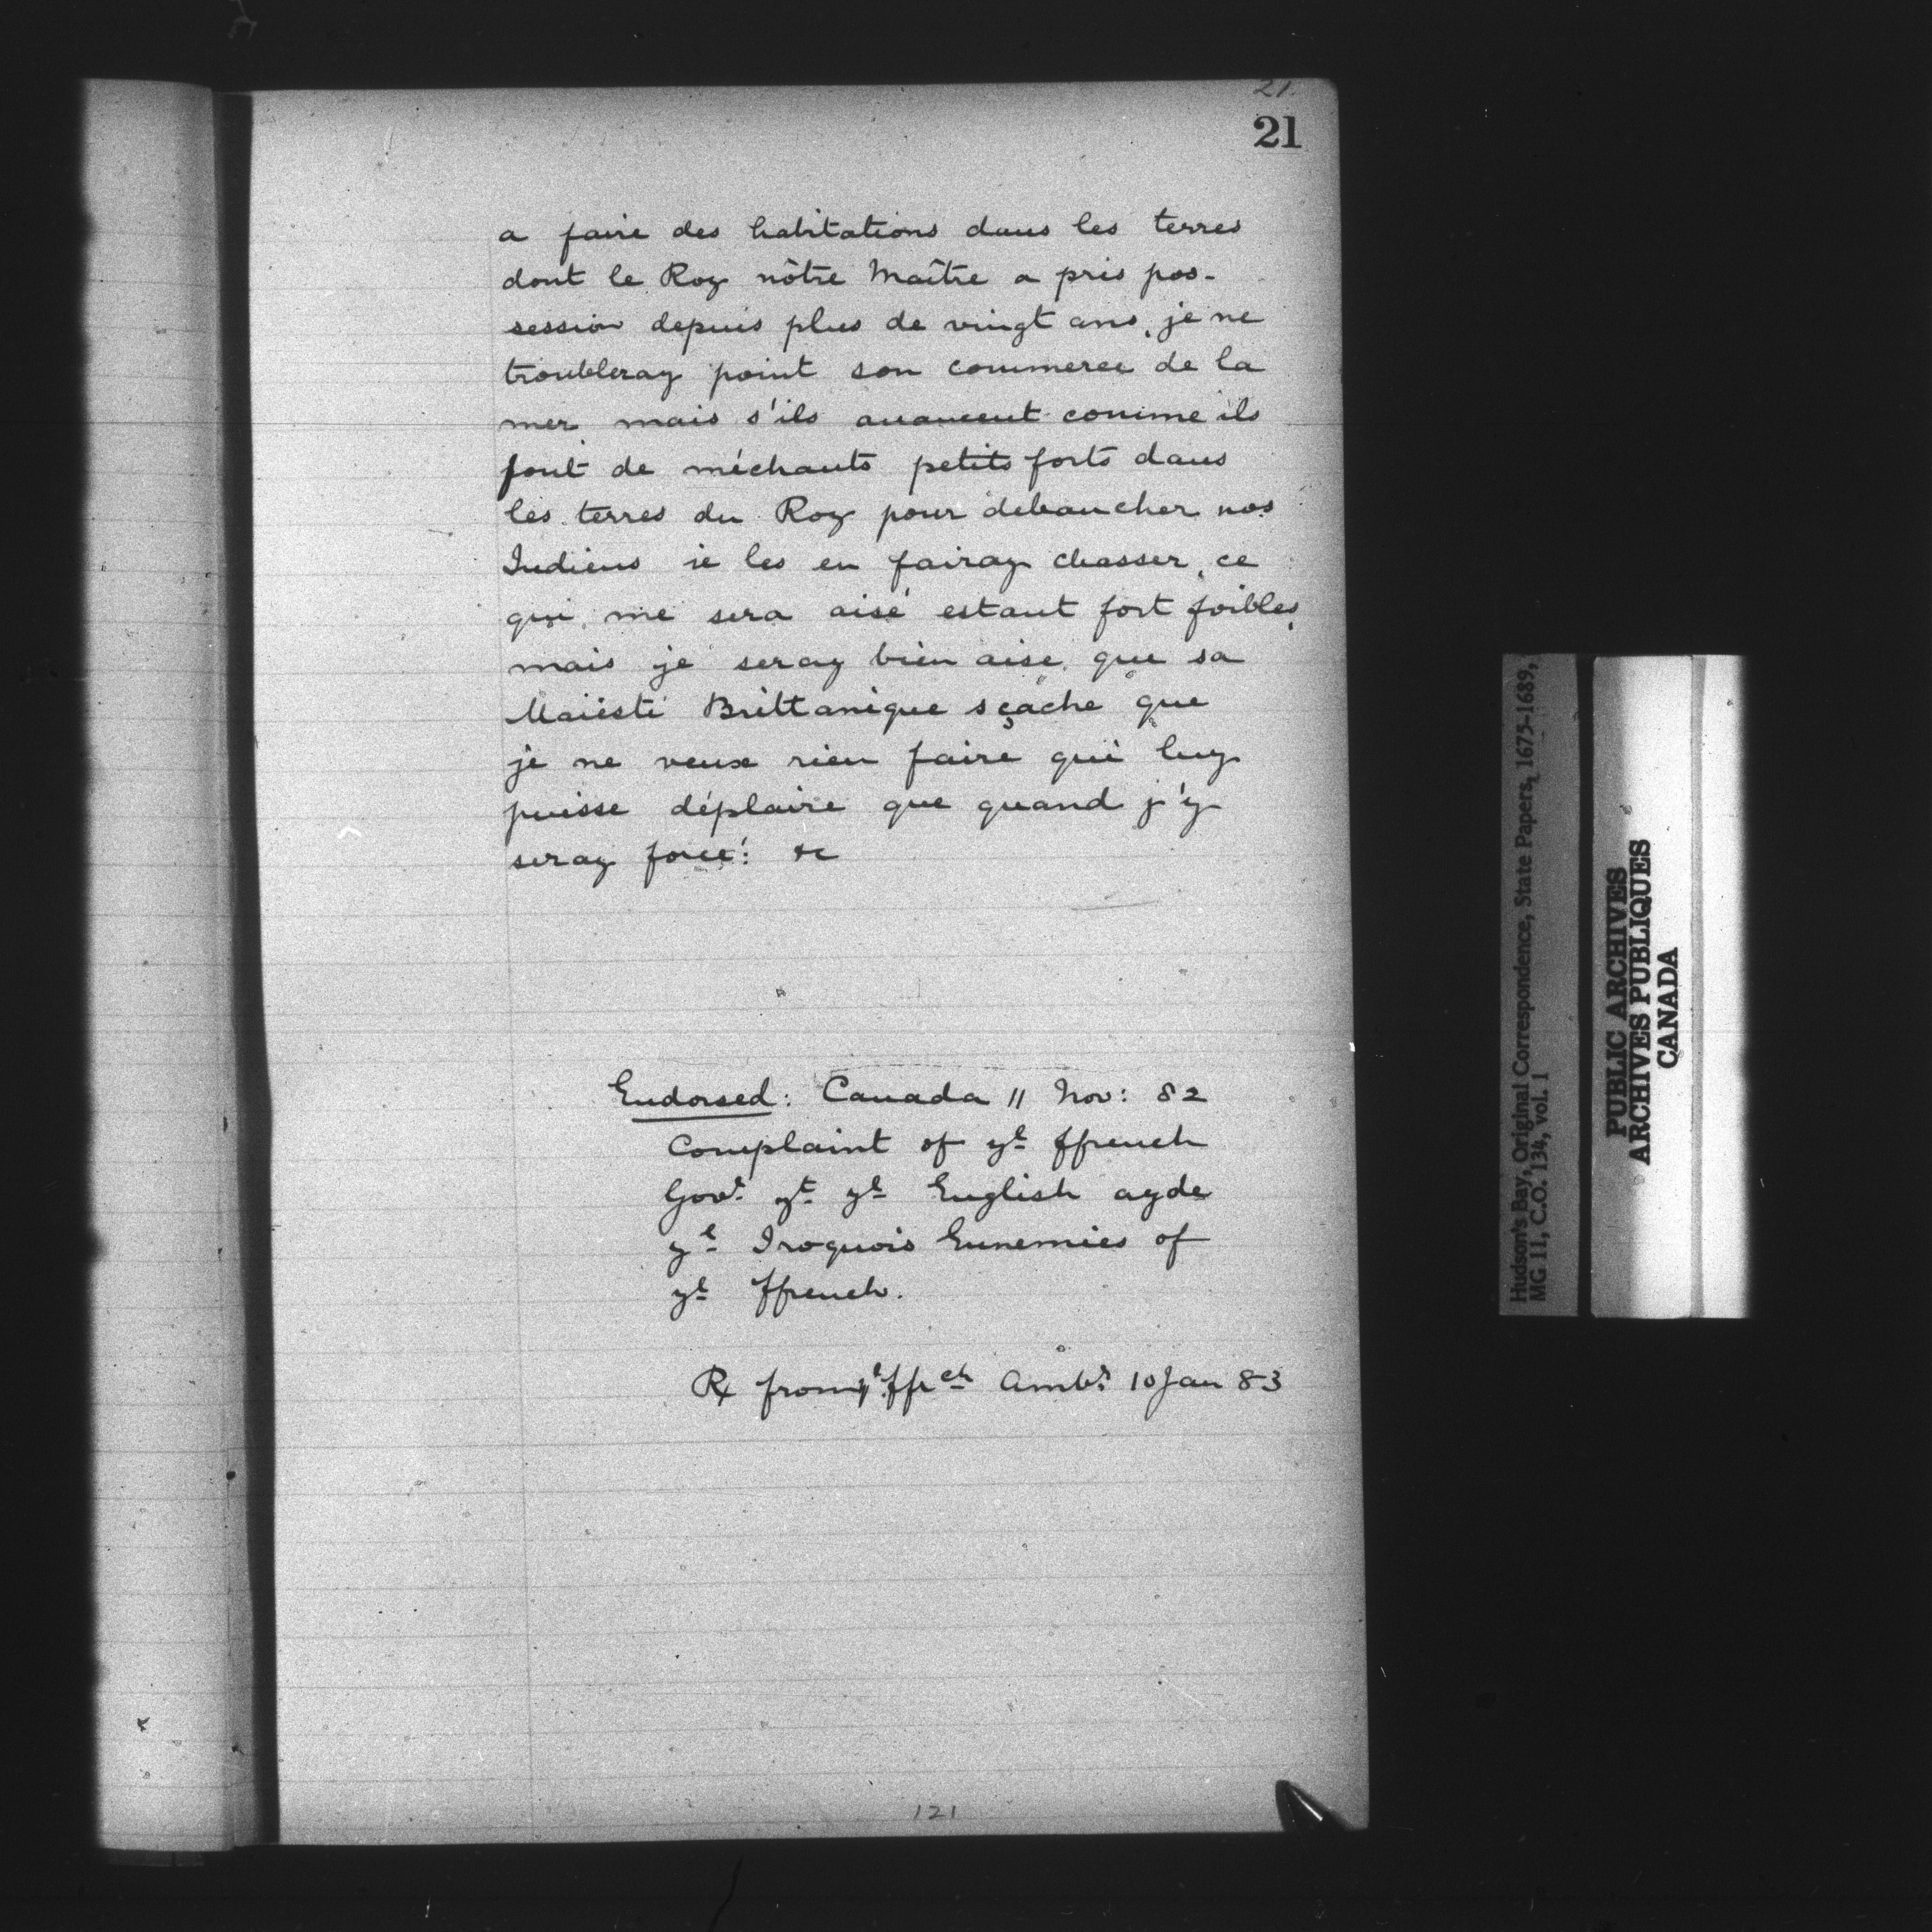 21.
21
a faire des habitations dans les terres
dont le Roy nôtre Maître a pris pos-
session depuis plus de vingt ans, je ne
troubleray point son commerce de la
mer, mais s'ils auancent comme ils
font de méchants petits forts dans
les terres du Roy pour debaucher nos
Indiens ie les en fairay chasser, ce
qui me sera aisé estant fort foibles,
mais je seray bien aise que sa
Maiesté Brittanique sçache que
je ne veux rien faire qui luy
puisse déplaire que quand j'y
seray forcé: &c
Endorsed: Canada 11 Nov: 82
Complaint of yᵉ ffrench
Govʳ yᵗ yᵉ English ayde
yᵉ Iroquois Ennemies of
yᵉ ffrench.
R from yᵉ ffrᶜʰ Ambʳ 10 Jan 83
121
Hudson's Bay, Original Correspondence, State Papers, 1675-1689,
MG 11, C.O. 134, vol. 1
PUBLIC ARCHIVES
ARCHIVES PUBLIQUES
CANADA